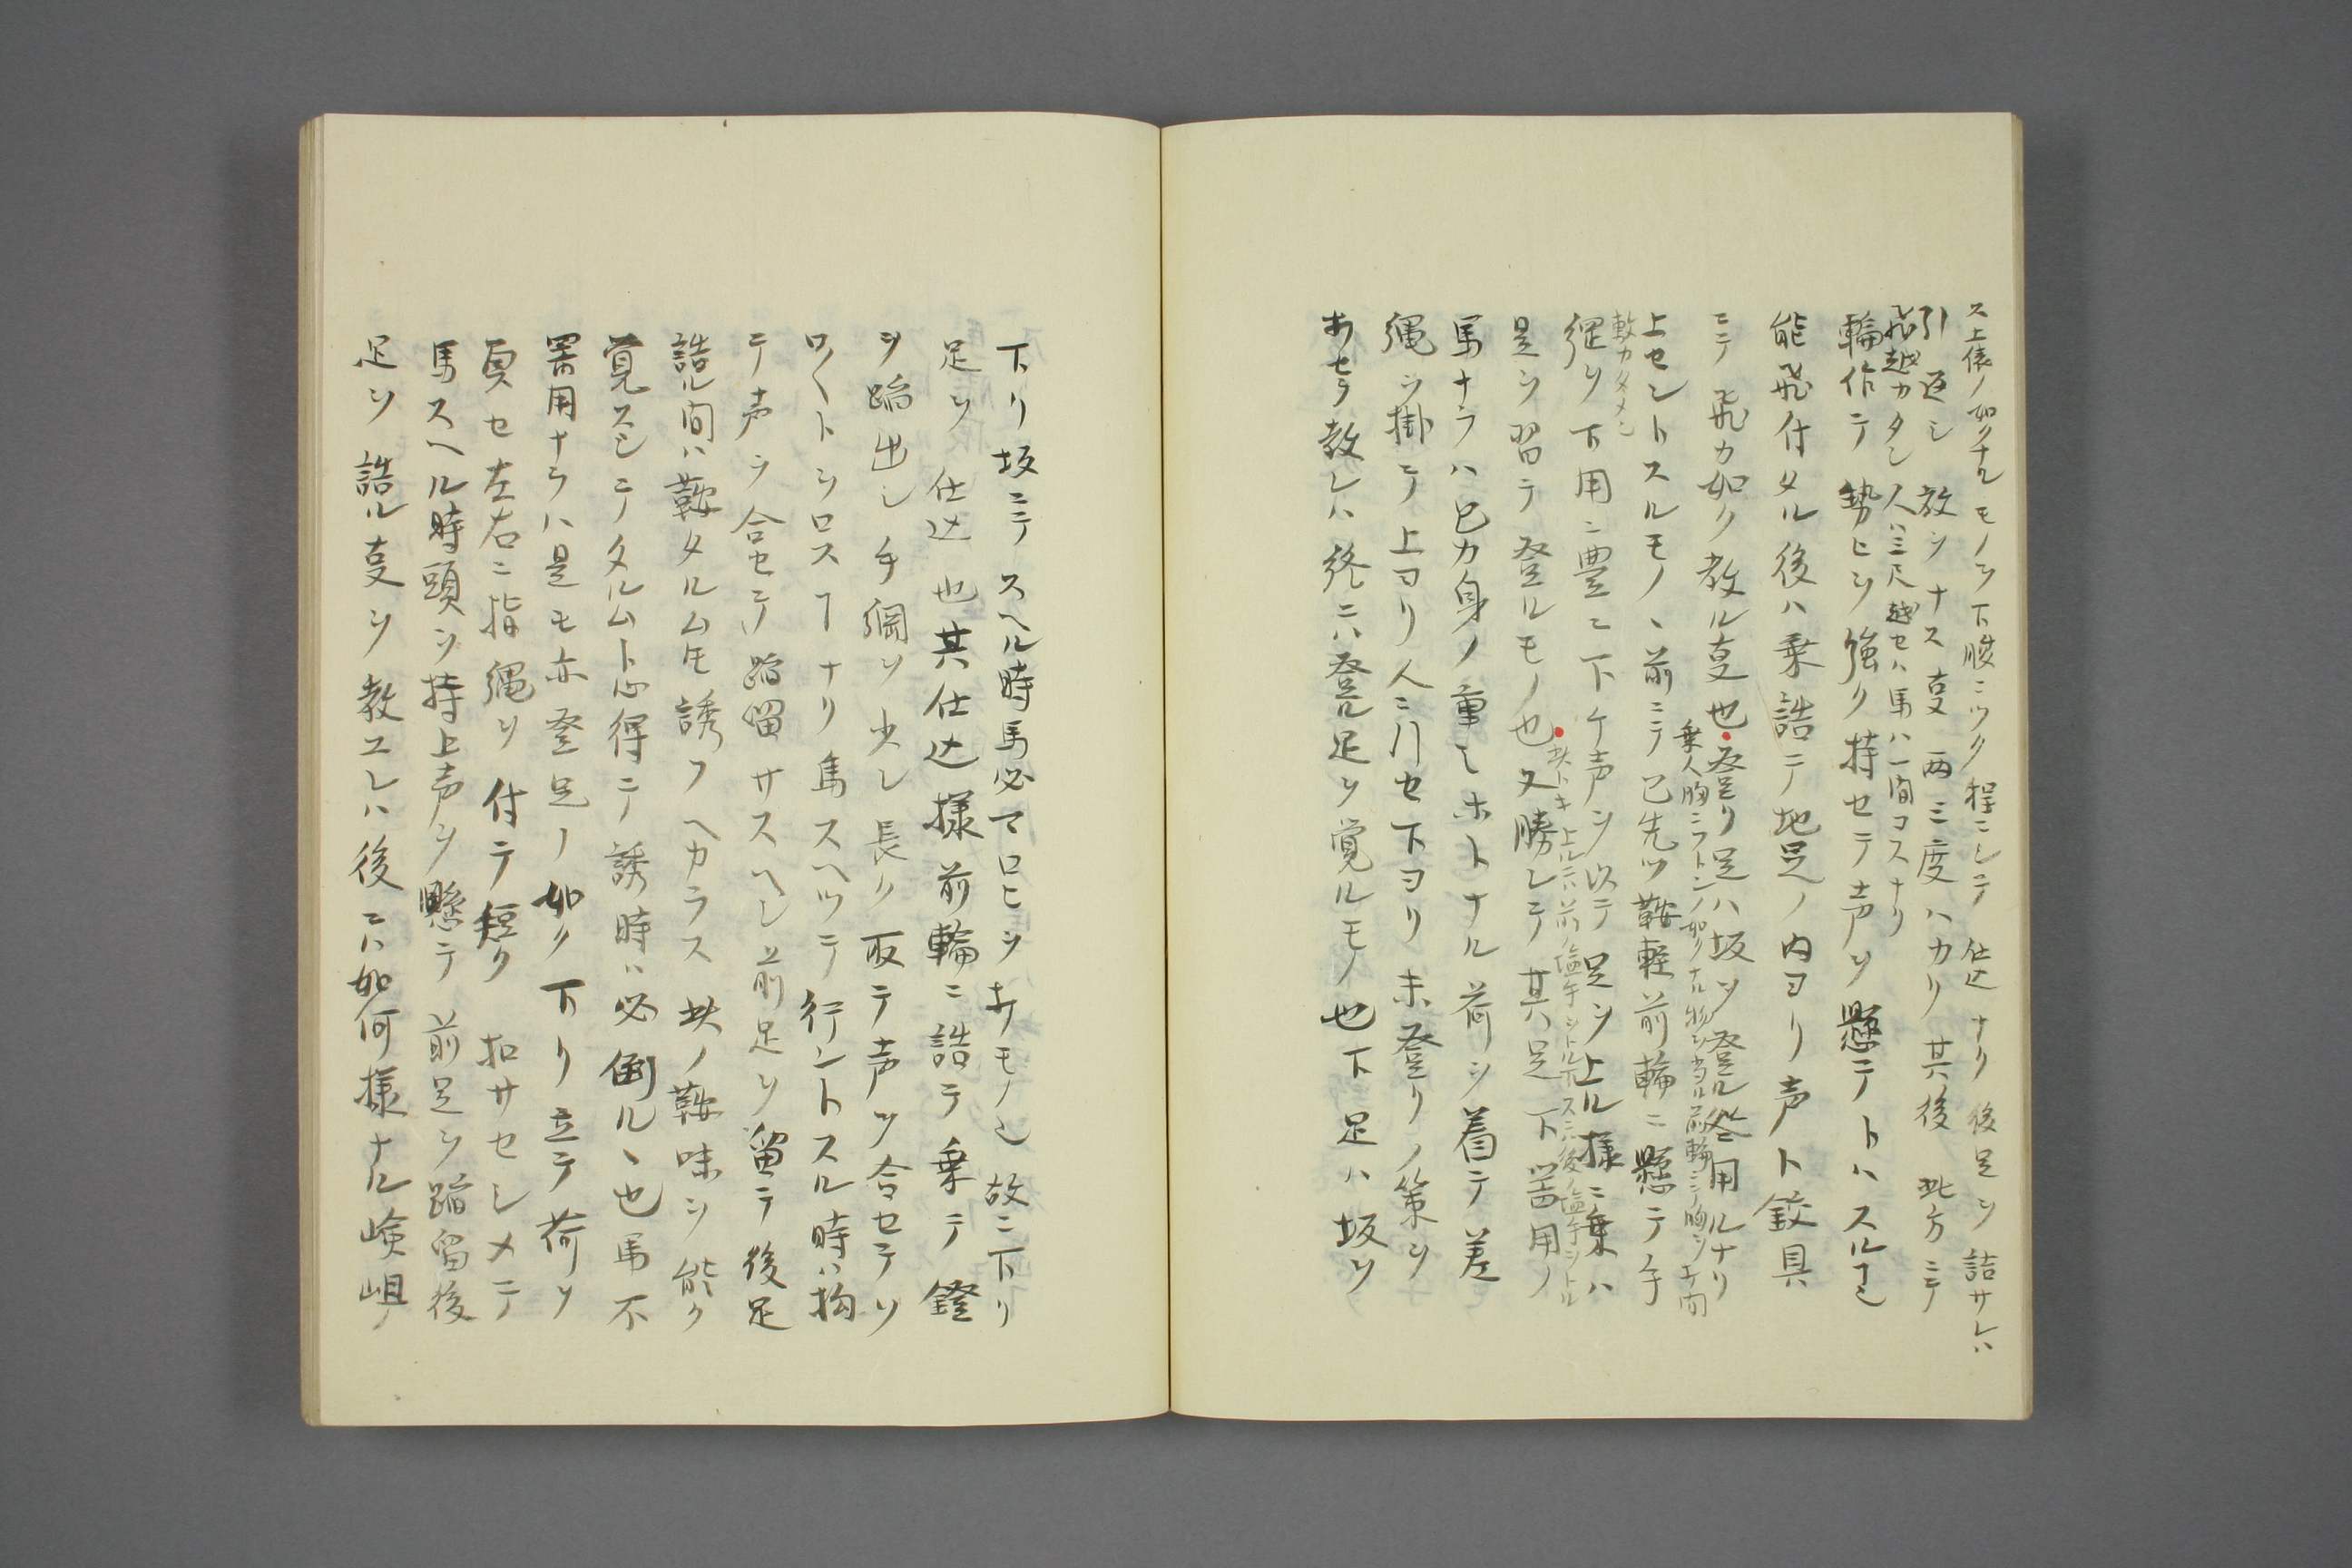 ス上俵ノ如クナルモノヲ下腹ニツク程ニシテ仕込ナリ後足ヲ詰サレハ
引返シ放シナス叓両三度ハカリ其後此方ニテ
飛越カタシ人ハ三尺越セハ馬ハ一間コスナリ
輪作テ勢ヒヲ強ク持セテ声ヲ懸テトハスル
能飛付タル後ハ乗誥テ地足ノ内ヨリ声ト鉸具
ニテ飛カ如ク教ル叓也登リ足ハ坂ヲ登ル用ルナリ
乗人胸ニフトンノ如クナル物ヲ当ル前輪ニテ胸ヲ
上セントスルモノ、前ニテ已先ツ鞍軽前輪ニ懸テ手
綱ヲ下用ニ豊ニ下ケ声ヲ以テ足ヲ上ル様ニ乗ハ
上ルニハ前ノ塩手ヲトル スニハ後ノ塩手ヲトル
是ヲ習テ登ルモノ也又勝レテ其足下用ノ
馬ナラハ已カ身ノ重サホトナル荷ヲ着テ差
縄ヲ掛テ上ヨリ人ニ引セ下ヨリ未登リノ策ヲ
教レハ終ニハ登ル足ヲ覚ルモノ也下足ハ坂ヲ
下リ坂ニテスヘル時馬必マロヒヲ打モノ也故ニ下リ
足ヲ仕込也其仕込様前輪ニ誥テ乗テ鐙
ヲ蹈出シ手綱ヲ少シ長ク取テ声ヲ合セテソ
ロ〱トヲロスナリ馬スヘツテ行ントスル時ハ拘
テ声ヲ合セテ蹈留サスヘシ前足ヲ留テ後足
誥ル間ハ鞍タルム氐誘フヘカラス此ノ鞍味ヲ能ク
覚スシテタルムト心得テ誘時ハ必倒ル、也馬不
器用ナラハ是モ亦登足ノ如ク下リ立テ荷ヲ
負セ左右ニ指縄ヲ付テ短ク扣サセシメテ
馬スヘル時頭ヲ持上声ヲ懸テ前足ヲ蹈留後
足ヲ誥ル叓ヲ教エレハ後ニハ如何様ナル嶮岨